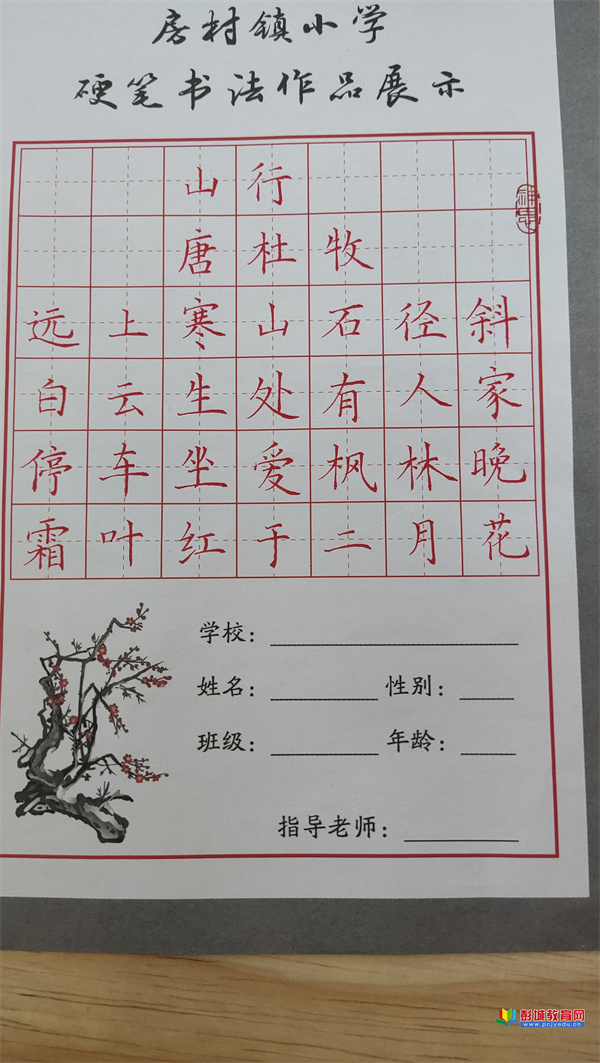 房村镇小学
硬笔书法作品展示
山行
唐杜牧
远上寒山石径斜
白云生处有人家
停车坐爱枫林晚
霜叶红于二月花
学校：
姓名： 性别：
班级： 年龄：
指导老师：
彭城教育网
www.pcjyedu.cn